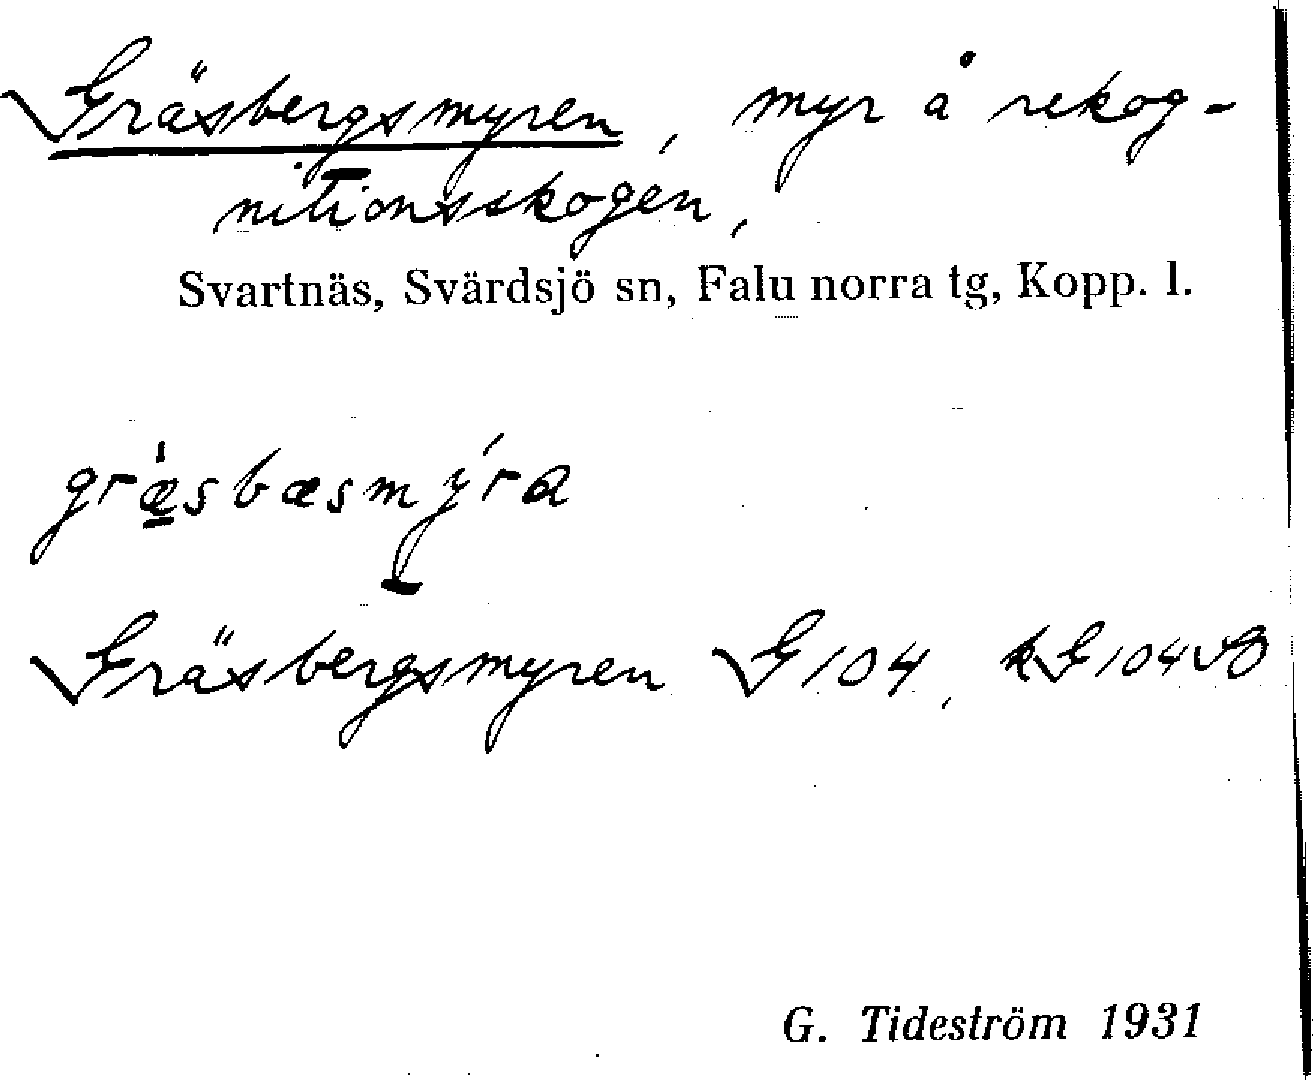 Gräsbergsmyren, myr å rekog-
nitionsskogen,
Svartnäs, Svärdsjö sn, Falu norra tg, Kopp. l.
grǽ̱sbæsmýra
Gräsbergsmyren G104, kG104
G. Tideström 1931